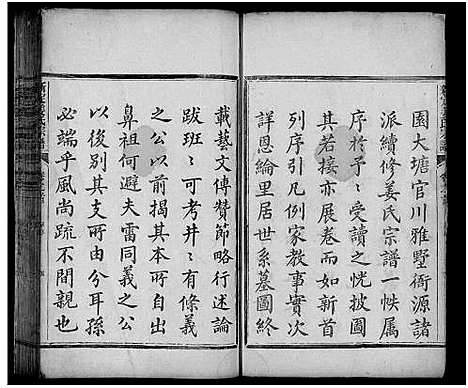 園大塘官川雅墅衙源諸
派續修姜氏宗譜一帙属
序於予〻受讀之恍披圖
其若接亦展卷而如新首
列序引凡例家教事實次
詳恩綸里居世系墓圖終
載藝文傳贊節略行述論
跋班〻可考井〻有條義
之公以前揭其本所自出
鼻祖何避夫雷同義之公
以後别其支所由分耳孫
必端乎風尚疏不間親也